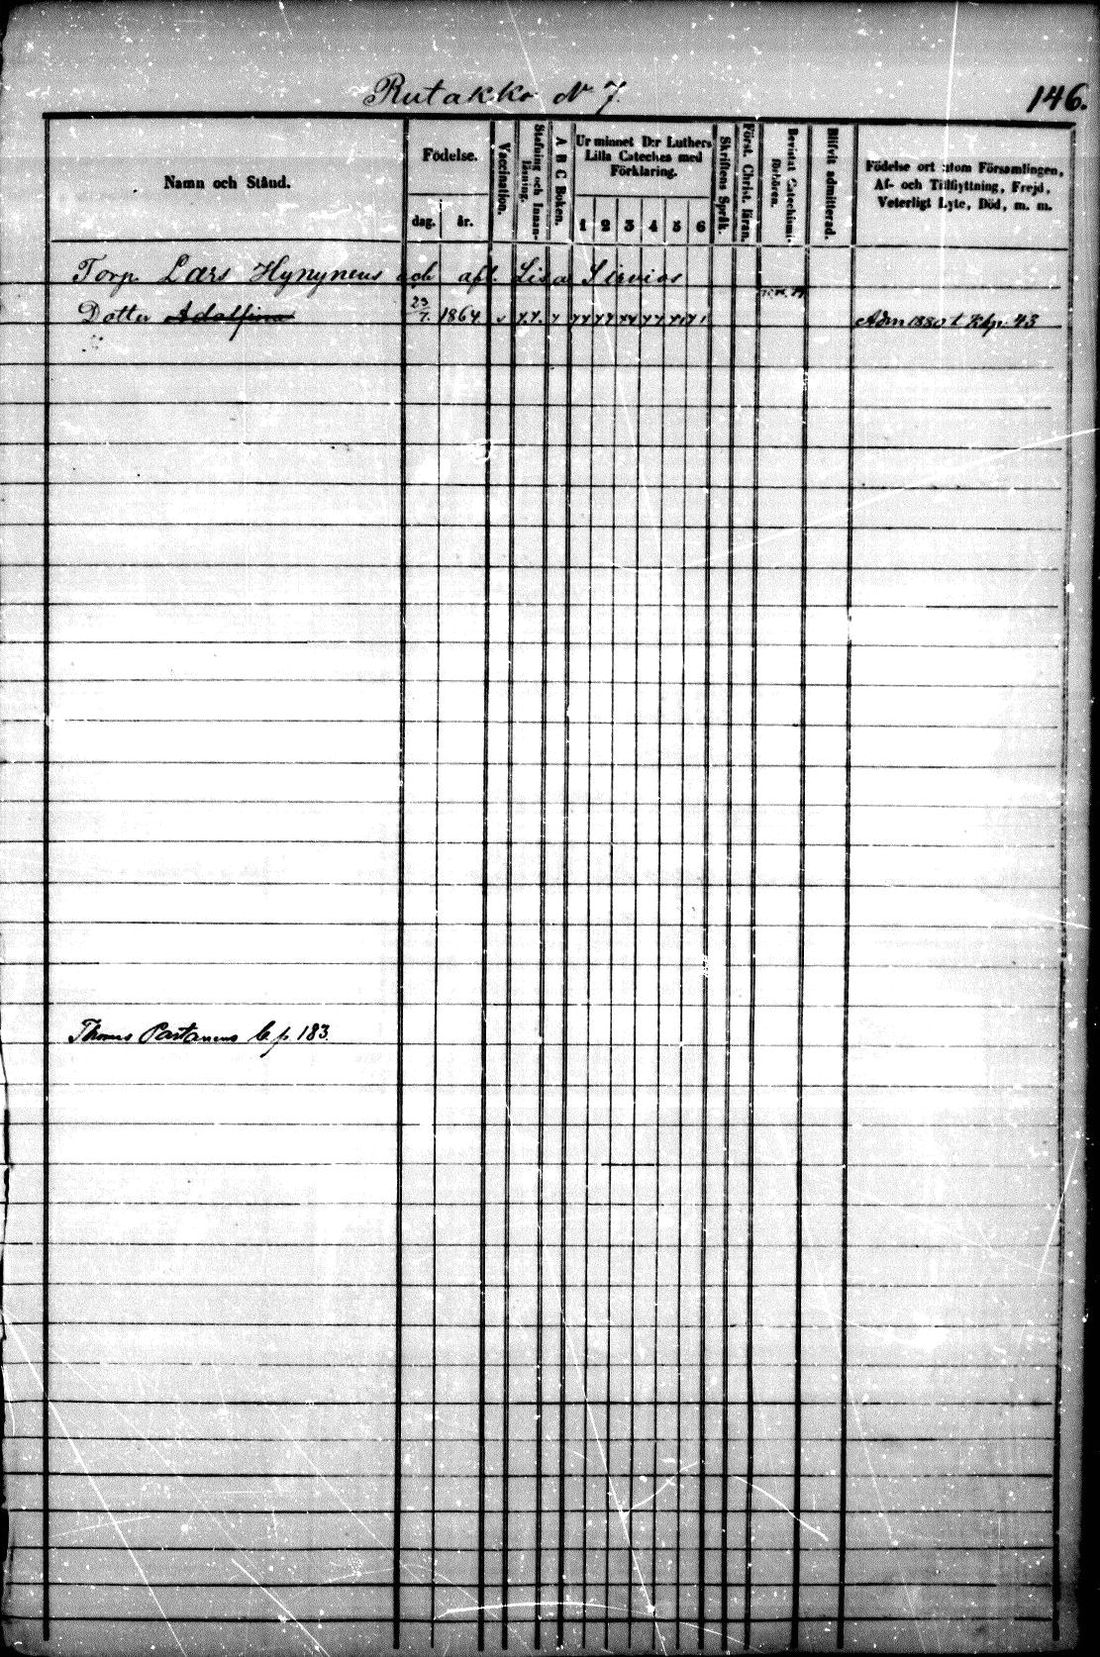 Rutakko N 7.
146.
Namn och Stånd.
Födelse.
dag.
år.
Vaccination.
Stafning och Innan-
läsning.
A B C Boken.
Ur minnet D:r Luthers
Lilla Cateches med
Förklaring.
1 2 3 4 5 6
Skriftens Språk.
Först. Christ. läran.
Bevistat Catechismi-
förhören.
Blifvit admitterad.
Födelse ort utom Församlingen,
Af- och Tillflyttning, Frejd,
Veterligt Lyte, Död, m. m.
Torp. Lars Hynynens och afl. Lisa Sirviös
Dotter Adolfina 23/7. 1864. Adm 1880 t Rkp. 43
Thomas Partanens b p. 183.